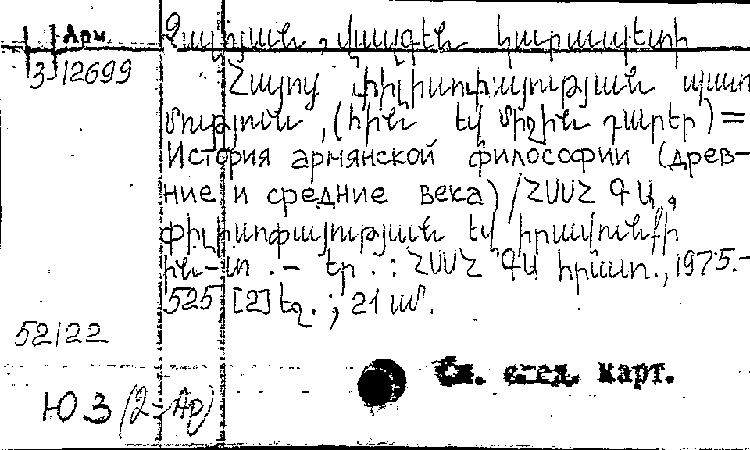 Арм.
Չալոյան, Վազգեն Կարապետի
3 12699
Հայոց փիլիսոփայության պատ
մություն, (հին եվ միջին դարեր) =
История армянской философии (древ-
ние и средние века) / ՀՍՍՀ ԳԱ,
փիլիսոփայության եվ իրավունքի
ին-տ. - Եր.: ՀՍՍՀ ԳԱ հրատ., 1975. -
525 [2] եջ.; 21 սմ.
52122
Ю 3 (2=Ар)
См. след. карт.